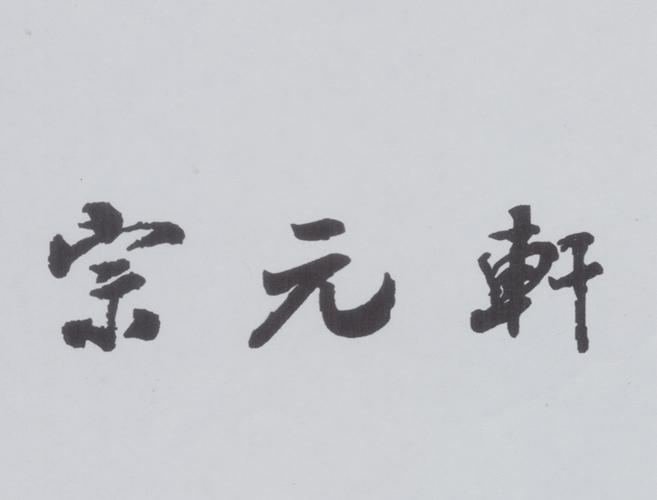 宗元軒